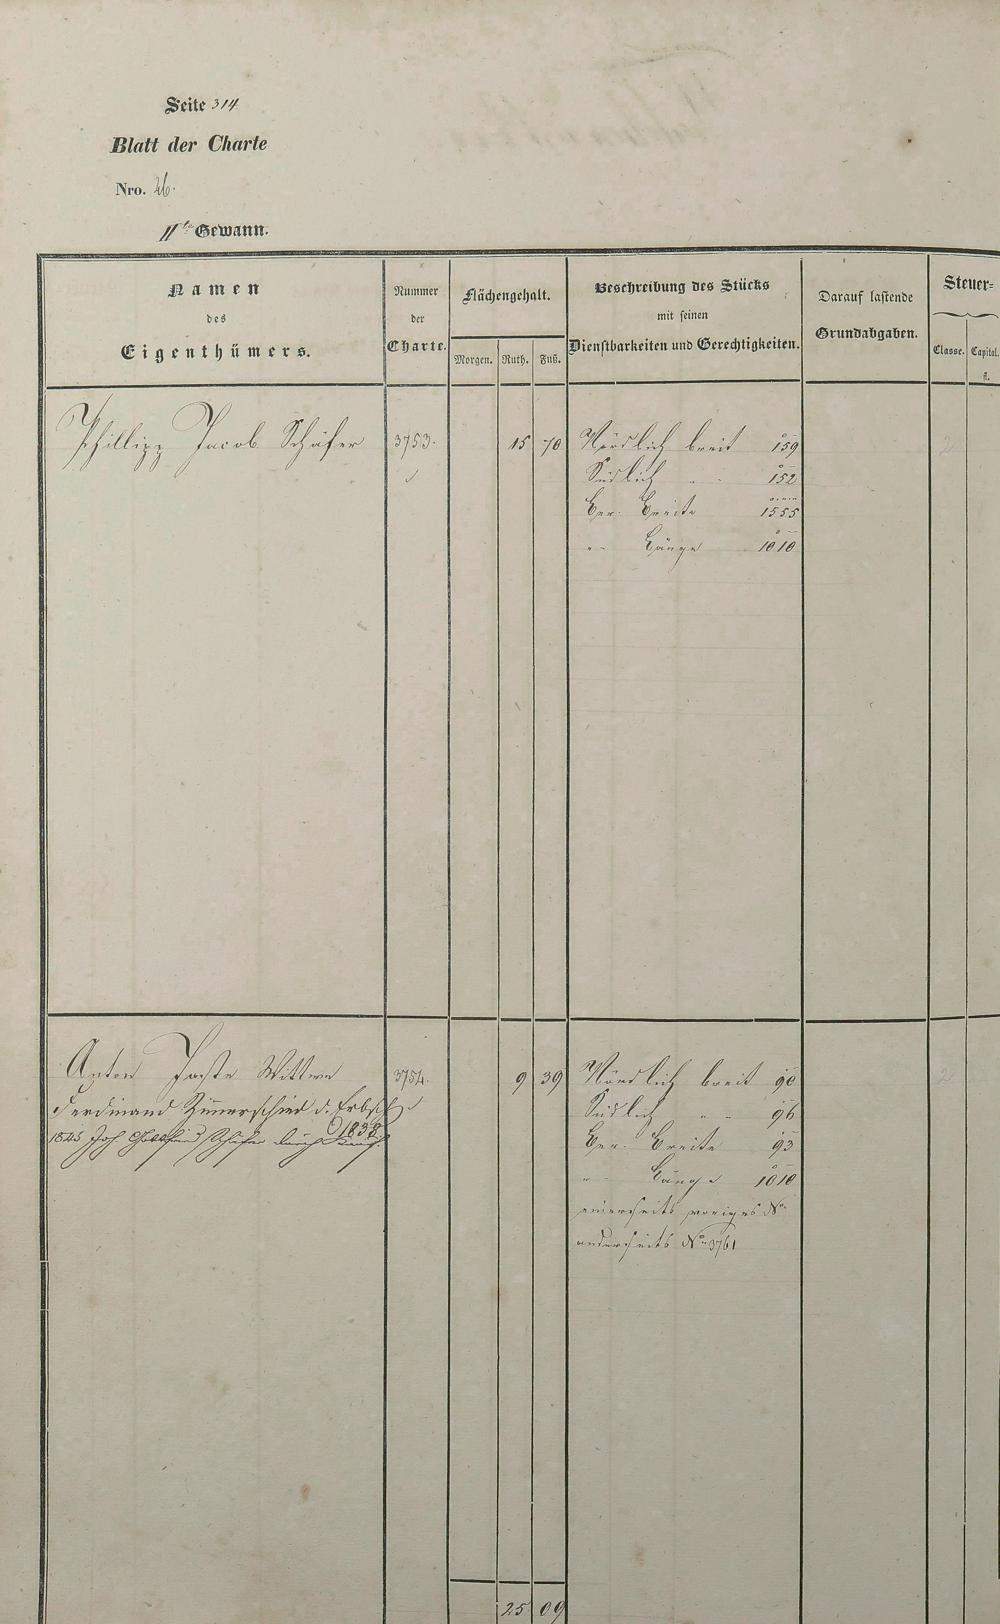 Seite 314
Blatt der Charte
Nro. 26.
IIte Gewann.
Namen
des
Eigenthümers.
Nummer
der
Charte.
Flächengehalt.
Morgen. Ruth. Fuß.
Beschreibung des Stücks
mit seinen
Dienstbarkeiten und Gerechtigkeiten.
Darauf lastende
Grundabgaben.
Steuer-
Classe. Capital.
fl.
Phillipp Jacob Schäfer 3753. 15 70 Nördlich breit 159 2
Südlich " " 152
Ber. Breite 1555
" Länge 1010
Anton Wittwe 3754. 9 39 Nördlich breit 90 2
Ferdinand d. Erbsch Südlich " " 96
1838
1845 Joh Schäfer durch Kauf. Ber. Breite 93
" Länge 1010
einerseits voriges No
anderseits No 3761
25 09